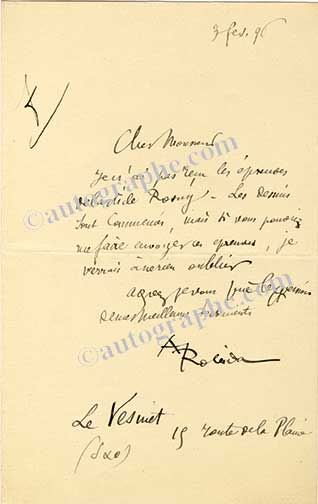 3 fév. 96
Cher Monsieur
Je n'ai pas reçu les épreuves
de l'article Rosny - Les dessins
sont commencés, mais si vous pouviez
me faire envoyer ces épreuves, je
verrais à ne rien oublier
agréez je vous prie l'expression
de mes meilleurs sentiments
A Robida
Le Vesinet 15 route de la Plaine
(S&O)
©autographe.com
©autographe.com
©autographe.com